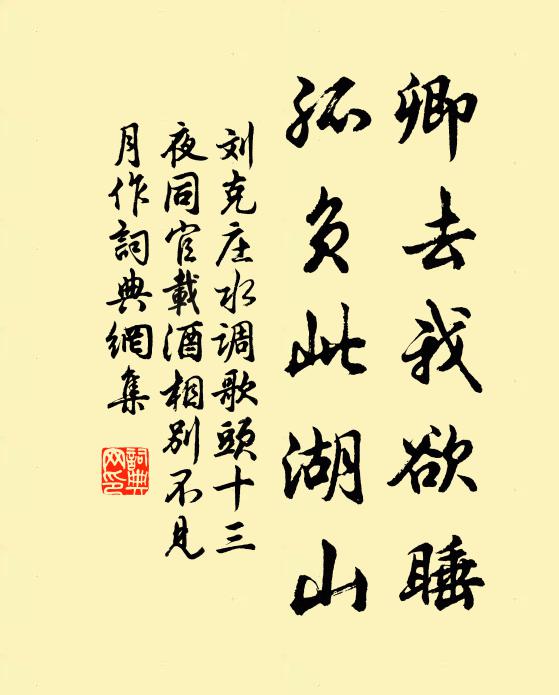 卿去我欲睡
孤负此湖山
刘克庄水调歌頭十三
夜同官載酒相别不見
月作詞典網集
詞典網印